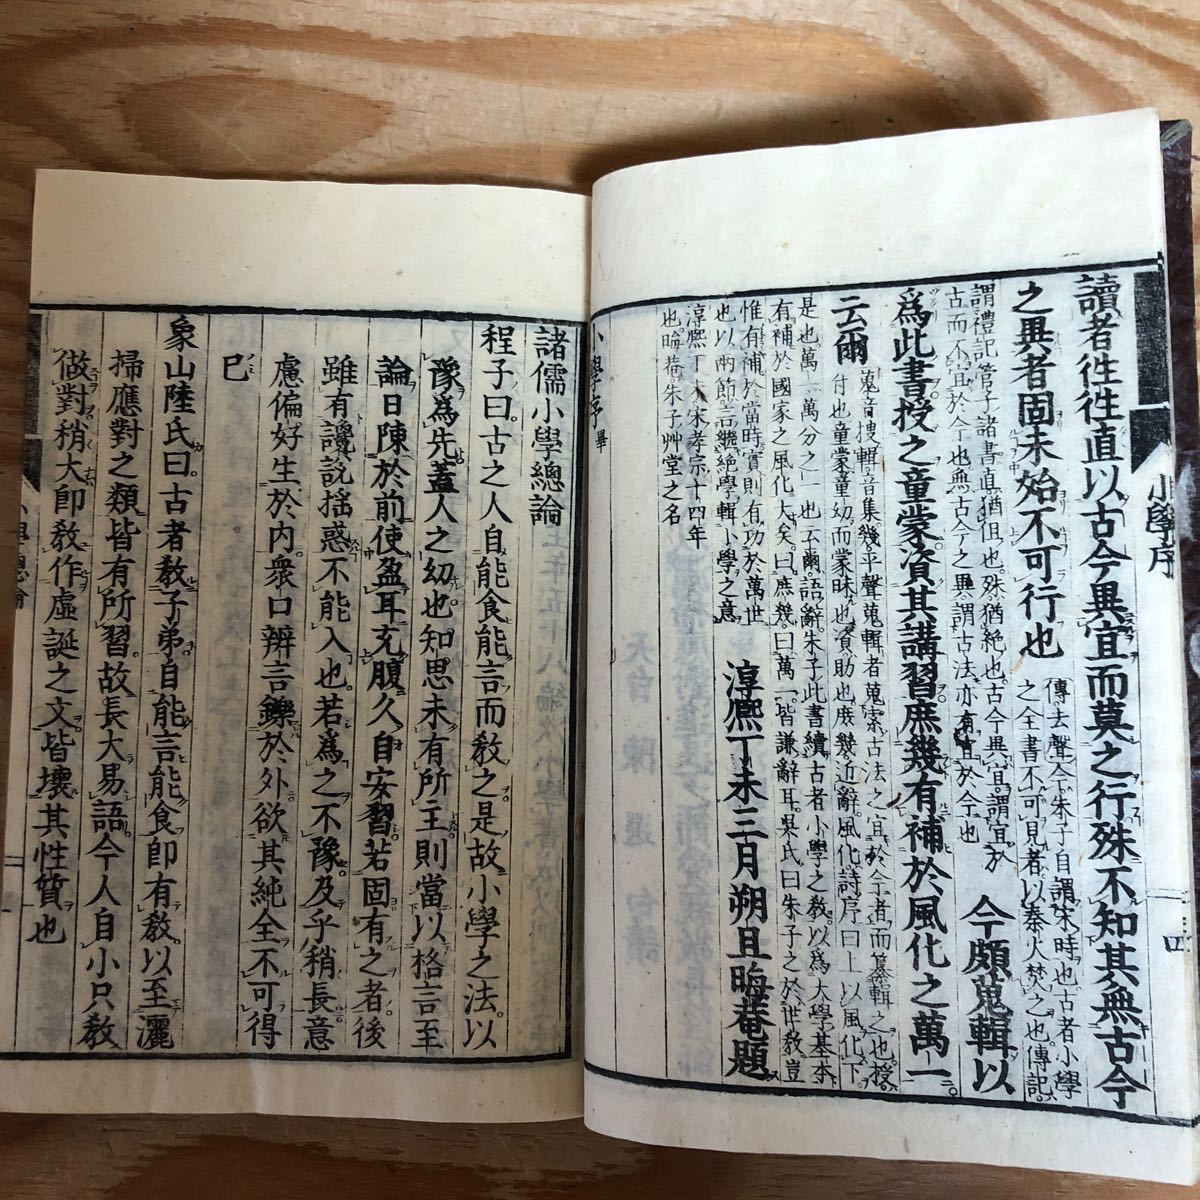 讀者徃徃直以古今異宜而莫之行殊不知其無古今
之異者固未始不可行也
傳去聲今朱子自謂宋時也古者小學
之全書不可見者以秦火焚之也傳記
謂禮記管子諸書直猶但也殊猶絶也古今異宜謂宜於
古而不宜於今也無古今之異謂古法亦有宜於今也
今頗蒐輯以
爲此書授之童蒙資其講習庶幾有補於風化之萬一
云爾
蒐音搜輯音集幾平聲蒐輯者蒐索古法之宜於今者而纂輯之也授
付也童蒙童幼而蒙昧也資助也庶幾近辭風化詩序曰上以風化下
是也萬一萬分之一也云爾語辭朱子此書續古者小學之敎以爲大學基本
有補於國家之風化大矣曰庶幾曰萬一皆謙辭耳吳氏曰朱子之於世敎豈
惟有補於當時實則有功於萬世
也以兩節言繼絶學輯小學之意
淳熈丁未三月朔旦晦菴題
淳熈丁未宋孝宗十四年
也晦菴朱子艸堂之名
小學序畢
小學序
四
諸儒小學總論
程子曰古之人自能食能言而敎之是故小學之法以
豫爲先蓋人之幼也知思未有所主則當以格言至
論日陳於前使盈耳充腹久自安習若固有之者後
雖有讒說揺惑不能入也若爲之不豫及乎稍長意
慮偏好生於内衆口辨言鑠於外欲其純全不可得
已
象山陸氏曰古者敎子弟自能言能食卽有敎以至灑
掃應對之類皆有所習故長大易語今人自小只敎
做對稍大卽敎作虛誕之文皆壞其性質也